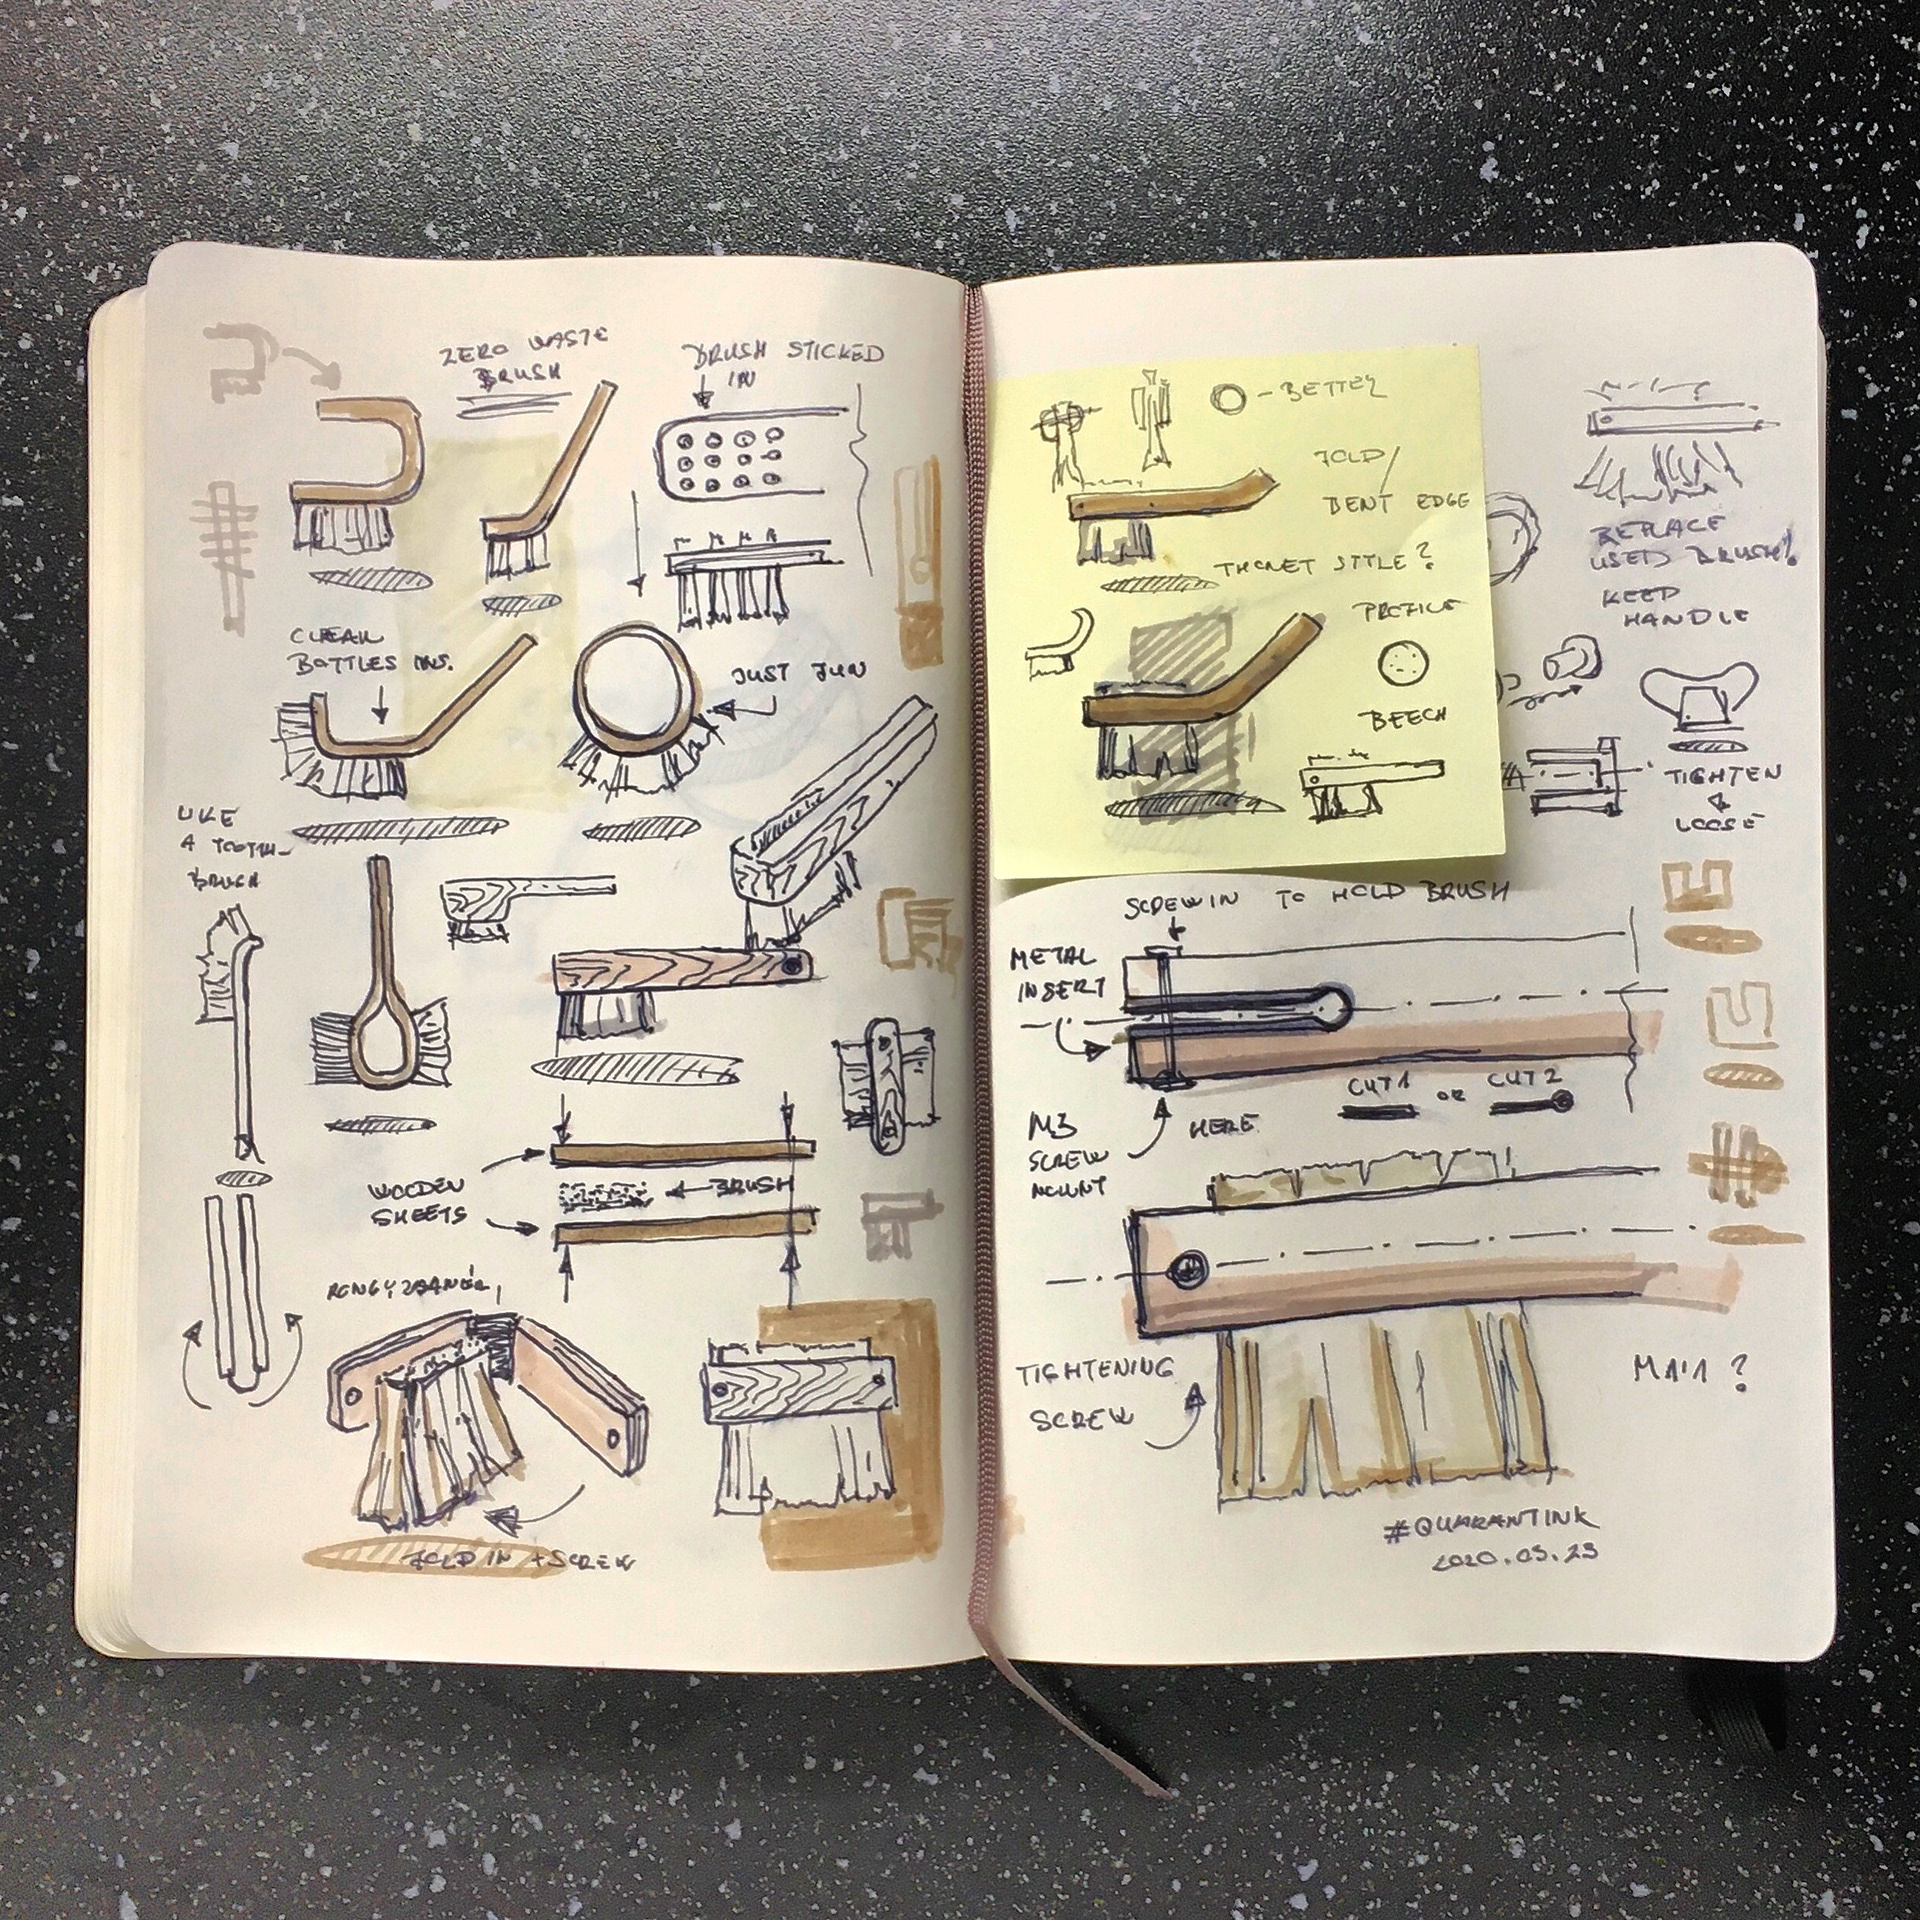 ZERO WASTE
BRUSH
BRUSH STICKED
IN
CLEAN
BOTTLES INS.
JUST FUN
LIKE
A TOOTH-
BRUSH
WOODEN
SHEETS
BRUSH
FOLD IN + SCREW
- BETTER
FOLD/
BENT EDGE
THONET STYLE?
PROFILE
BEECH
REPLACE
USED BRUSH!
KEEP
HANDLE
TIGHTEN
&
LOOSE
SCREW IN TO HOLD BRUSH
METAL
INSERT
CUT 1 OR CUT 2
M3
SCREW
MOUNT
HERE
TIGHTENING
SCREW
#QUARANTINK